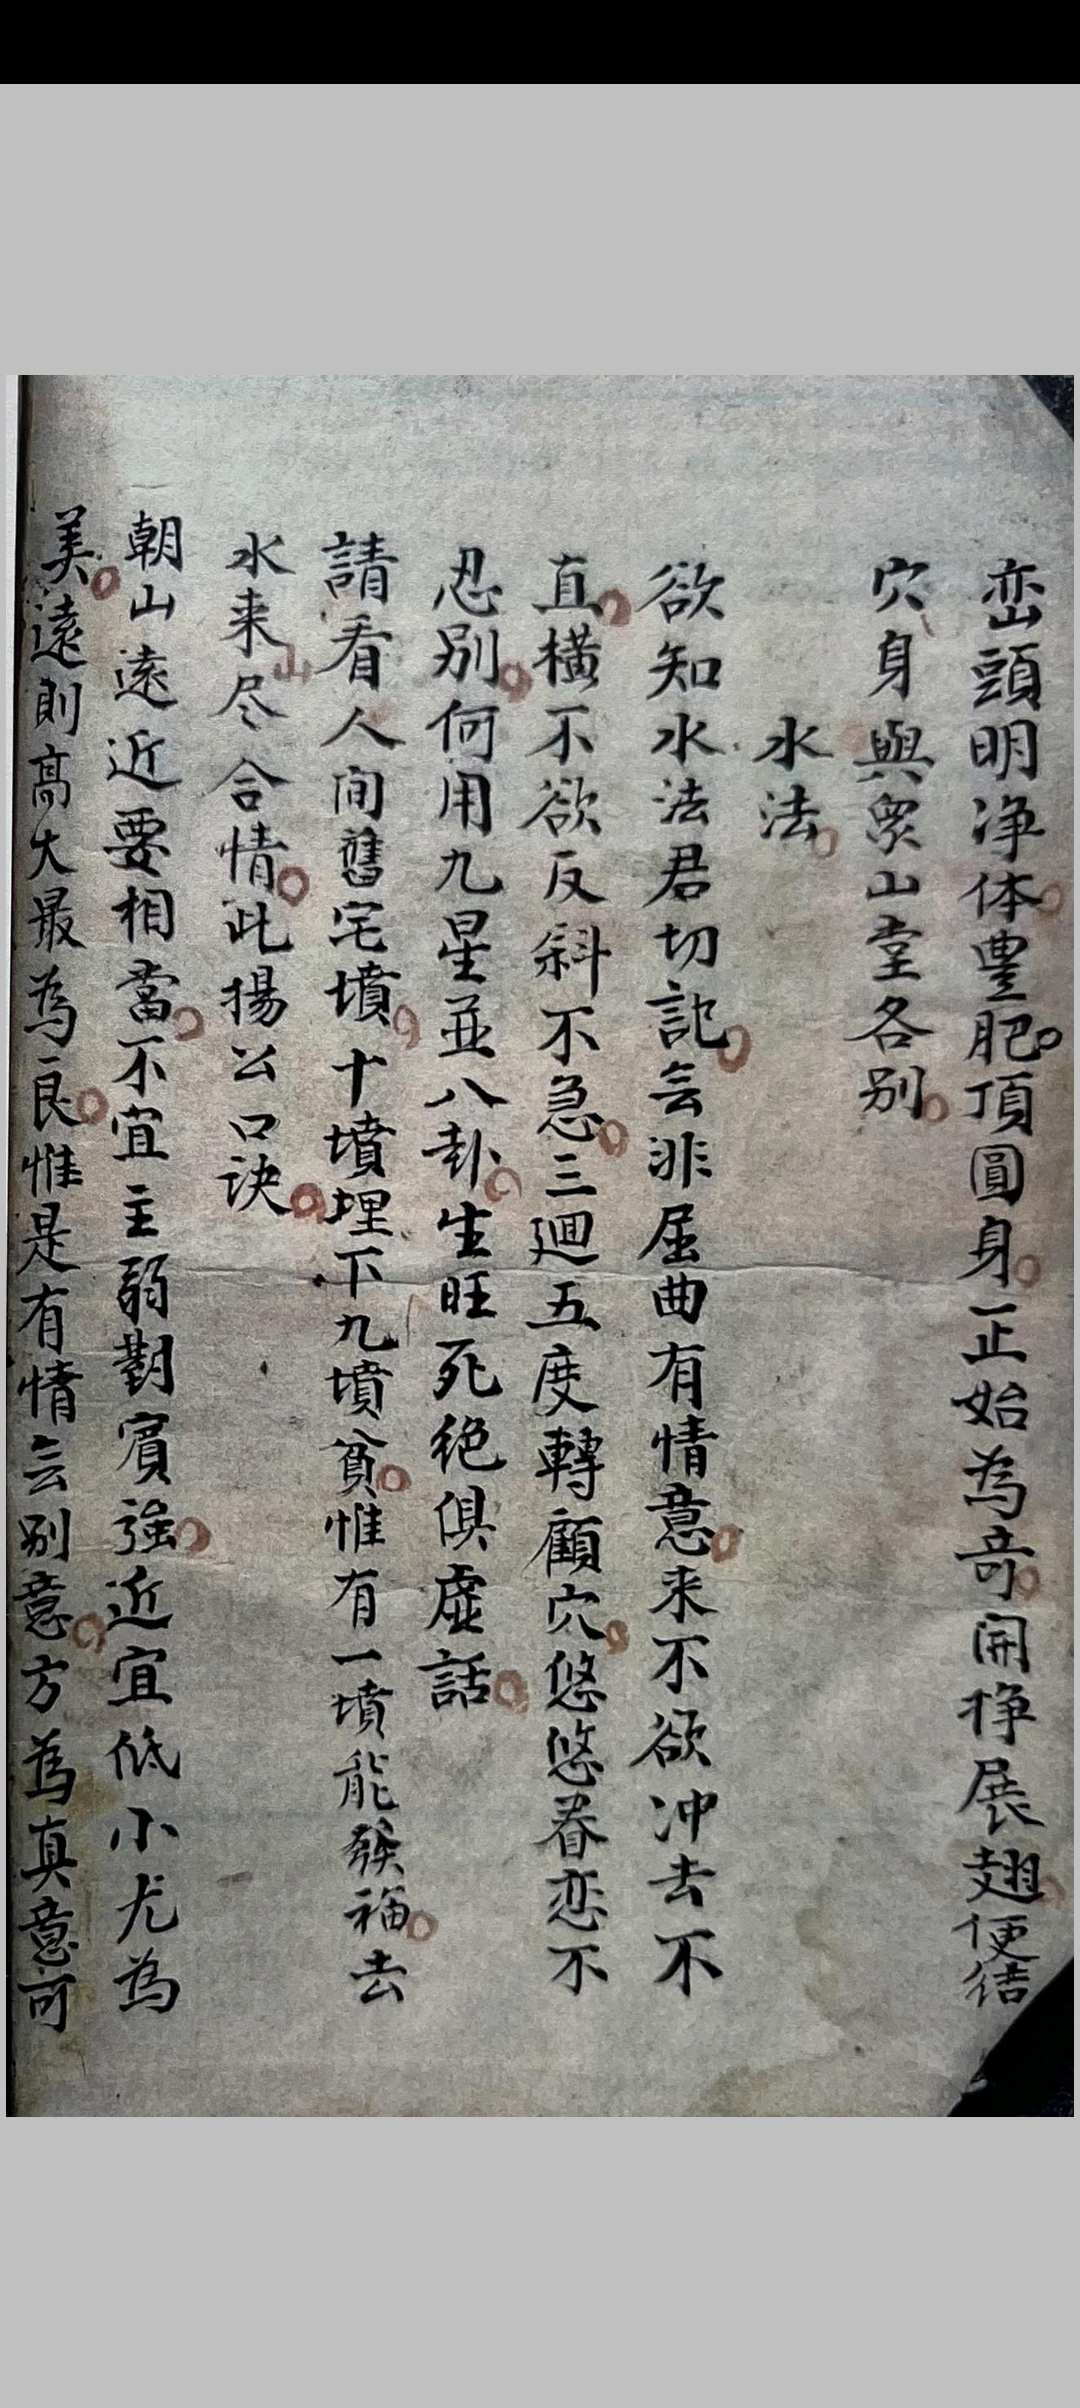 峦頭明浄体豊肥頂圓身一正始為竒開挣展翅便结
穴身與眾山堂各别
水法
欲知水法君切記会非屈曲有情意来不欲冲去不
直横不欲反斜不急三廻五度轉顧穴悠悠眷恋不
忍别何用九星並八卦生旺死绝俱虚話
請看人间舊宅墳十墳埋下九墳貧惟有一墳能發福去
水来山尽合情此揚公口诀
朝山遠近要相當不宜主弱對賓強近宜低小尤為
美遠則髙大最為良惟是有情会别意方為真意可